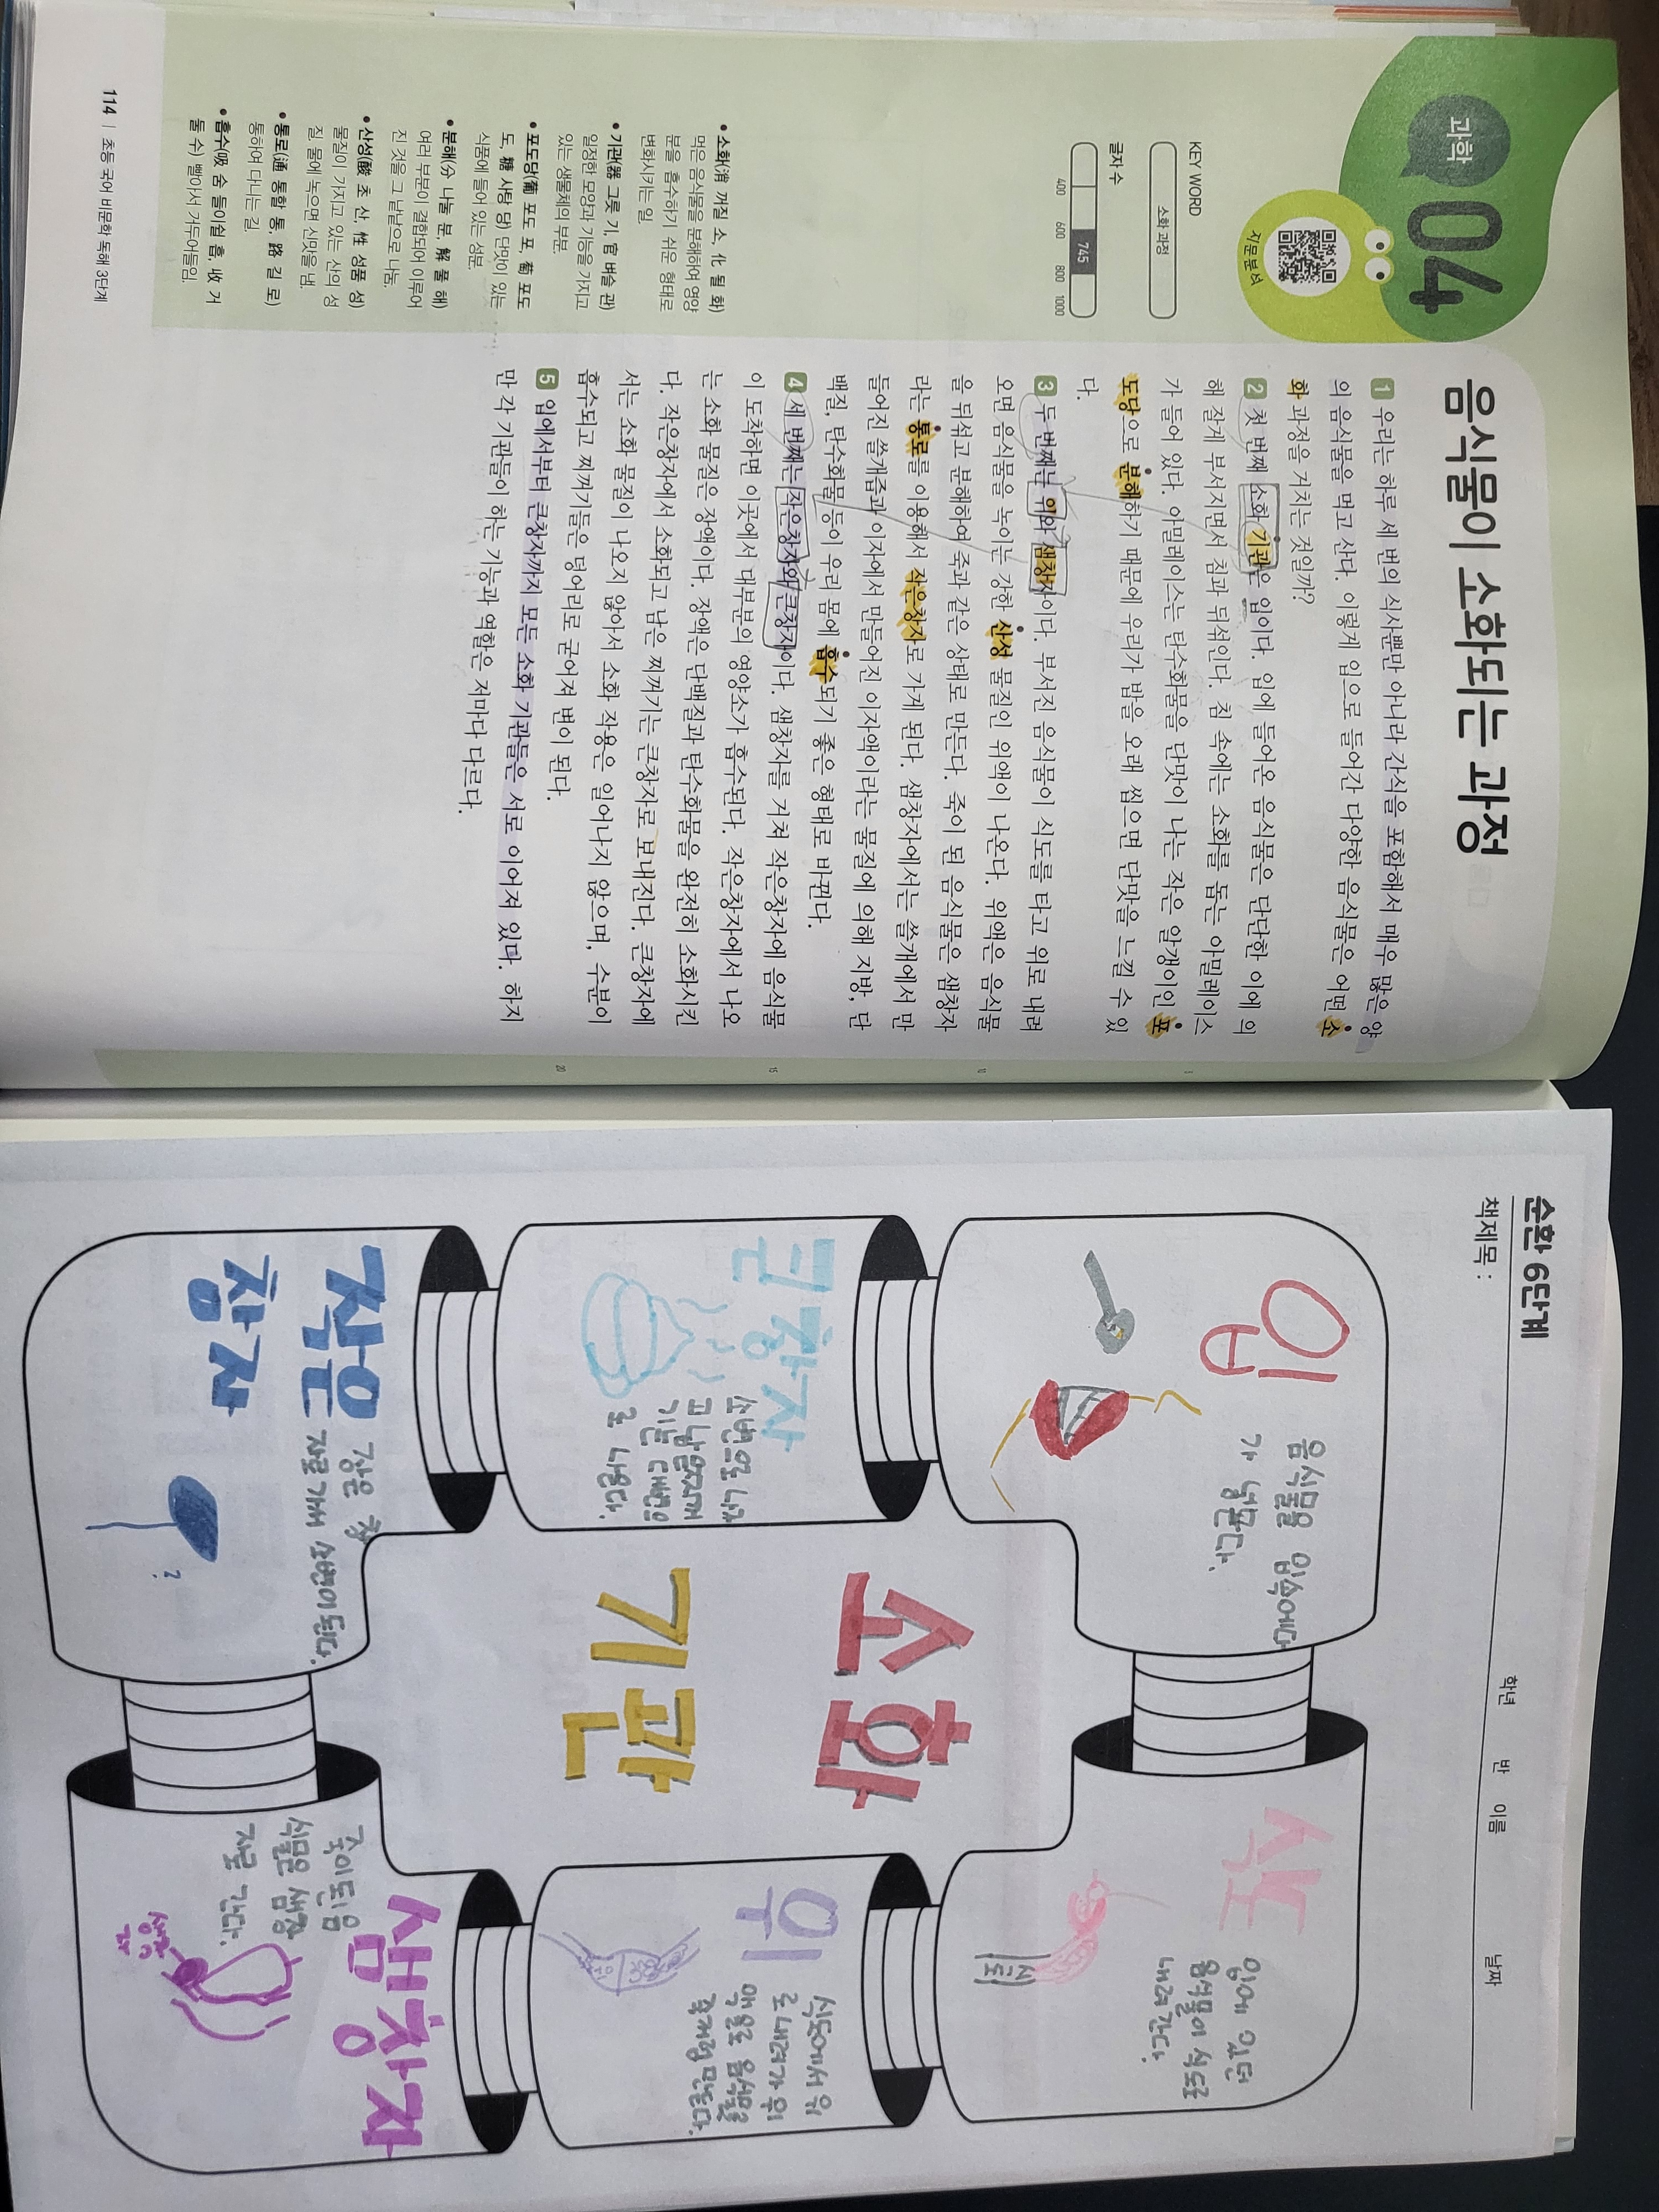 과학
04
지문분석
음식물이 소화되는 과정
KEY WORD
소화 과정
글자 수
745
400 600 800 1000
• 소화(消 꺼질 소, 化 될 화)
먹은 음식물을 분해하여 영양
분을 흡수하기 쉬운 형태로
변화시키는 일.
• 기관(器 그릇 기, 官 벼슬 관)
일정한 모양과 기능을 가지고
있는 생물체의 부분.
• 포도당(葡 포도 포, 萄 포도
도, 糖 사탕 당) 단맛이 있는
식품에 들어 있는 성분.
• 분해(分 나눌 분, 解 풀 해)
여러 부분이 결합되어 이루어
진 것을 그 낱낱으로 나눔.
• 산성(酸 초 산, 性 성품 성)
물질이 가지고 있는 산의 성
질. 물에 녹으면 신맛을 냄.
• 통로(通 통할 통, 路 길 로)
통하여 다니는 길.
• 흡수(吸 숨 들이쉴 흡, 收 거
둘 수) 빨아서 거두어들임.
114 | 초등 국어 비문학 독해 3단계
1 우리는 하루 세 번의 식사뿐만 아니라 간식을 포함해서 매우 많은 양
의 음식물을 먹고 산다. 이렇게 입으로 들어간 다양한 음식물은 어떤 소
화 과정을 거치는 것일까?
2 첫 번째 소화 기관은 입이다. 입에 들어온 음식물은 단단한 이에 의
해 잘게 부서지면서 침과 뒤섞인다. 침 속에는 소화를 돕는 아밀레이스
가 들어 있다. 아밀레이스는 탄수화물을 단맛이 나는 작은 알갱이인 포
도당으로 분해하기 때문에 우리가 밥을 오래 씹으면 단맛을 느낄 수 있
다.
3 두 번째는 위와 샘창자이다. 부서진 음식물이 식도를 타고 위로 내려
오면 음식물을 녹이는 강한 산성 물질인 위액이 나온다. 위액은 음식물
을 뒤섞고 분해하여 죽과 같은 상태로 만든다. 죽이 된 음식물은 샘창자
라는 통로를 이용해서 작은창자로 가게 된다. 샘창자에서는 쓸개에서 만
들어진 쓸개즙과 이자에서 만들어진 이자액이라는 물질에 의해 지방, 단
백질, 탄수화물 등이 우리 몸에 흡수되기 좋은 형태로 바뀐다.
4 세 번째는 작은창자와 큰창자이다. 샘창자를 거쳐 작은창자에 음식물
이 도착하면 이곳에서 대부분의 영양소가 흡수된다. 작은창자에서 나오
는 소화 물질은 장액이다. 장액은 단백질과 탄수화물을 완전히 소화시킨
다. 작은창자에서 소화되고 남은 찌꺼기는 큰창자로 보내진다. 큰창자에
서는 소화 물질이 나오지 않아서 소화 작용은 일어나지 않으며, 수분이
흡수되고 찌꺼기들은 덩어리로 굳어져 변이 된다.
5 입에서부터 큰창자까지 모든 소화 기관들은 서로 이어져 있다. 하지
만 각 기관들이 하는 기능과 역할은 저마다 다르다.
5
10
15
20
순환 6단계
책제목 :
학년 반 이름 날짜
입
음식물을 입속에다
가 넣는다.
식도
입에 있던
음식물이 식도로
내려간다.
식도
위
식도에서 위
로 내려가 위
액으로 음식물을
죽처럼 만든다.
샘창자
죽이된 음
식물은 샘창
자로 간다.
작은
창자
작은 창
자로 가서 소변이 된다.
?
큰창자
소변으로 나가
고 남은 찌꺼
기는 대변으
로 나온다.
소화
기관